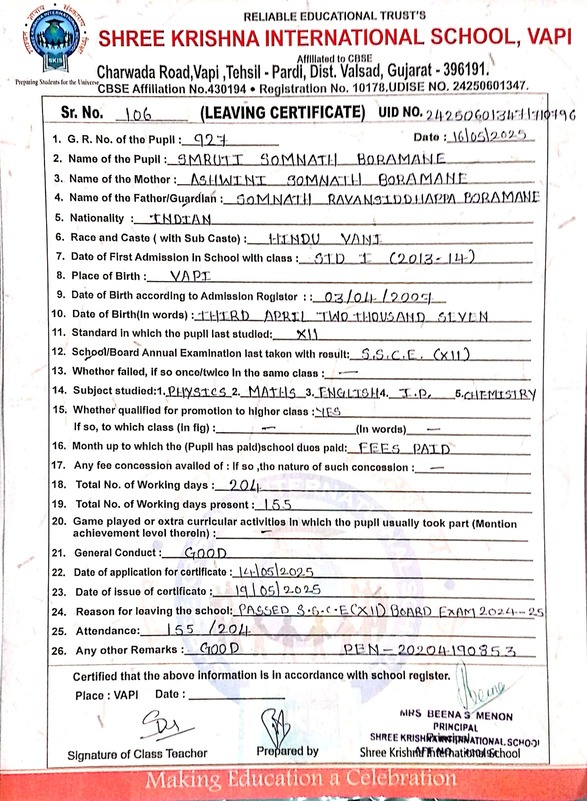 RELIABLE EDUCATIONAL TRUST'S
SHREE KRISHNA INTERNATIONAL SCHOOL, VAPI
Affiliated to CBSE
Charwada Road,Vapi ,Tehsil - Pardi, Dist. Valsad, Gujarat - 396191.
CBSE Affiliation No.430194 • Registration No. 10178,UDISE NO. 24250601347.
SKIS
Preparing Students for the Universe
Sr. No. 106 (LEAVING CERTIFICATE) UID NO. 242506013471710796
1. G. R. No. of the Pupil : 927 Date : 16/05/2025
2. Name of the Pupil : SMRUTI SOMNATH BORAMANE
3. Name of the Mother : ASHWINI SOMNATH BORAMANE
4. Name of the Father/Guardian : SOMNATH RAVANSIDDHAPPA BORAMANE
5. Nationality : INDIAN
6. Race and Caste ( with Sub Caste) : HINDU VANI
7. Date of First Admission in School with class : STD I (2013-14)
8. Place of Birth : VAPI
9. Date of Birth according to Admission Register : : 03/04/2007
10. Date of Birth(In words) : THIRD APRIL TWO THOUSAND SEVEN
11. Standard in which the pupil last studied: XII
12. School/Board Annual Examination last taken with result: S.S.C.E. (XII)
13. Whether failed, if so once/twice in the same class: —
14. Subject studied:1. PHYSICS 2. MATHS 3. ENGLISH 4. I.P. 5. CHEMISTRY
15. Whether qualified for promotion to higher class : YES
If so, to which class (in fig) : — (In words) —
16. Month up to which the (Pupil has paid)school dues paid: FEES PAID
17. Any fee concession availed of : If so ,the nature of such concession : —
18. Total No. of Working days : 204
19. Total No. of Working days present : 155
20. Game played or extra curricular activities in which the pupil usually took part (Mention
achievement level therein) : —
21. General Conduct : GOOD
22. Date of application for certificate : 14/05/2025
23. Date of issue of certificate : 19/05/2025
24. Reason for leaving the school: PASSED S.S.C.E(XII) BOARD EXAM 2024-25
25. Attendance: 155 /204
26. Any other Remarks : GOOD PEN-20204190853
Certified that the above information is in accordance with school register.
Place : VAPI Date :
MRS BEENA S MENON
PRINCIPAL
SHREE KRISHNA INTERNATIONAL SCHOOL
Signature of Class Teacher Prepared by Shree Krishna International School
Making Education a Celebration